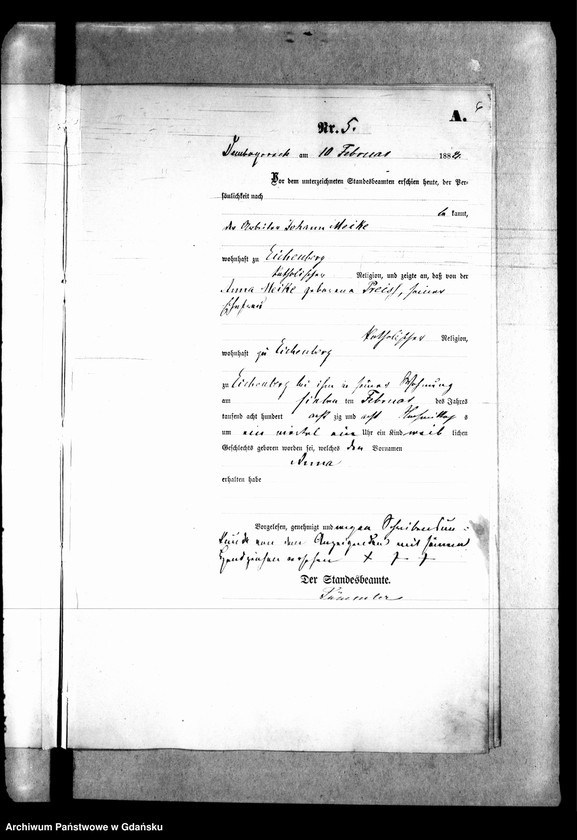 A.
6
Nr. 5.
Dembogorsch am 10 Februar 1888.
Vor dem unterzeichneten Standesbeamten erschien heute, der Per-
sönlichkeit nach
be kannt,
der Arbeiter Johann Meike
wohnhaft zu Eichenberg
katholischer Religion, und zeigte an, daß von der
Anna Meike geborene Preiss, seiner
Ehefrau
katholischer Religion,
wohnhaft zu Eichenberg
zu Eichenberg bei ihm in seiner Wohnung
am sieben ten Februar des Jahres
tausend acht hundert acht zig und acht Vormittag s
um ein viertel ein Uhr ein Kind weib lichen
Geschlechts geboren worden sei, welches den Vornamen
Anna
erhalten habe
Vorgelesen, genehmigt und wegen Schreibensun-
kunde von dem Anzeigenden mit seinem
Handzeichen versehen + + +
Der Standesbeamte.
Archiwum Państwowe w Gdańsku